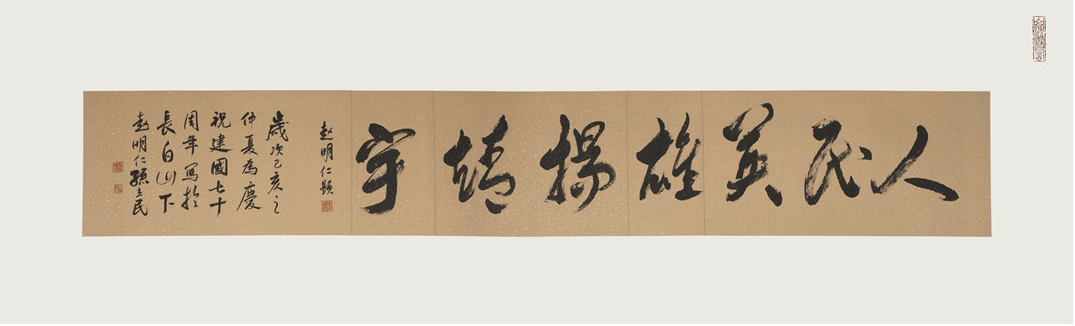 人民英雄揚靖宇
赵明仁題
歲次己亥之
仲夏為慶
祝建國七十
周年寫於
長白山下
赵明仁孫主民